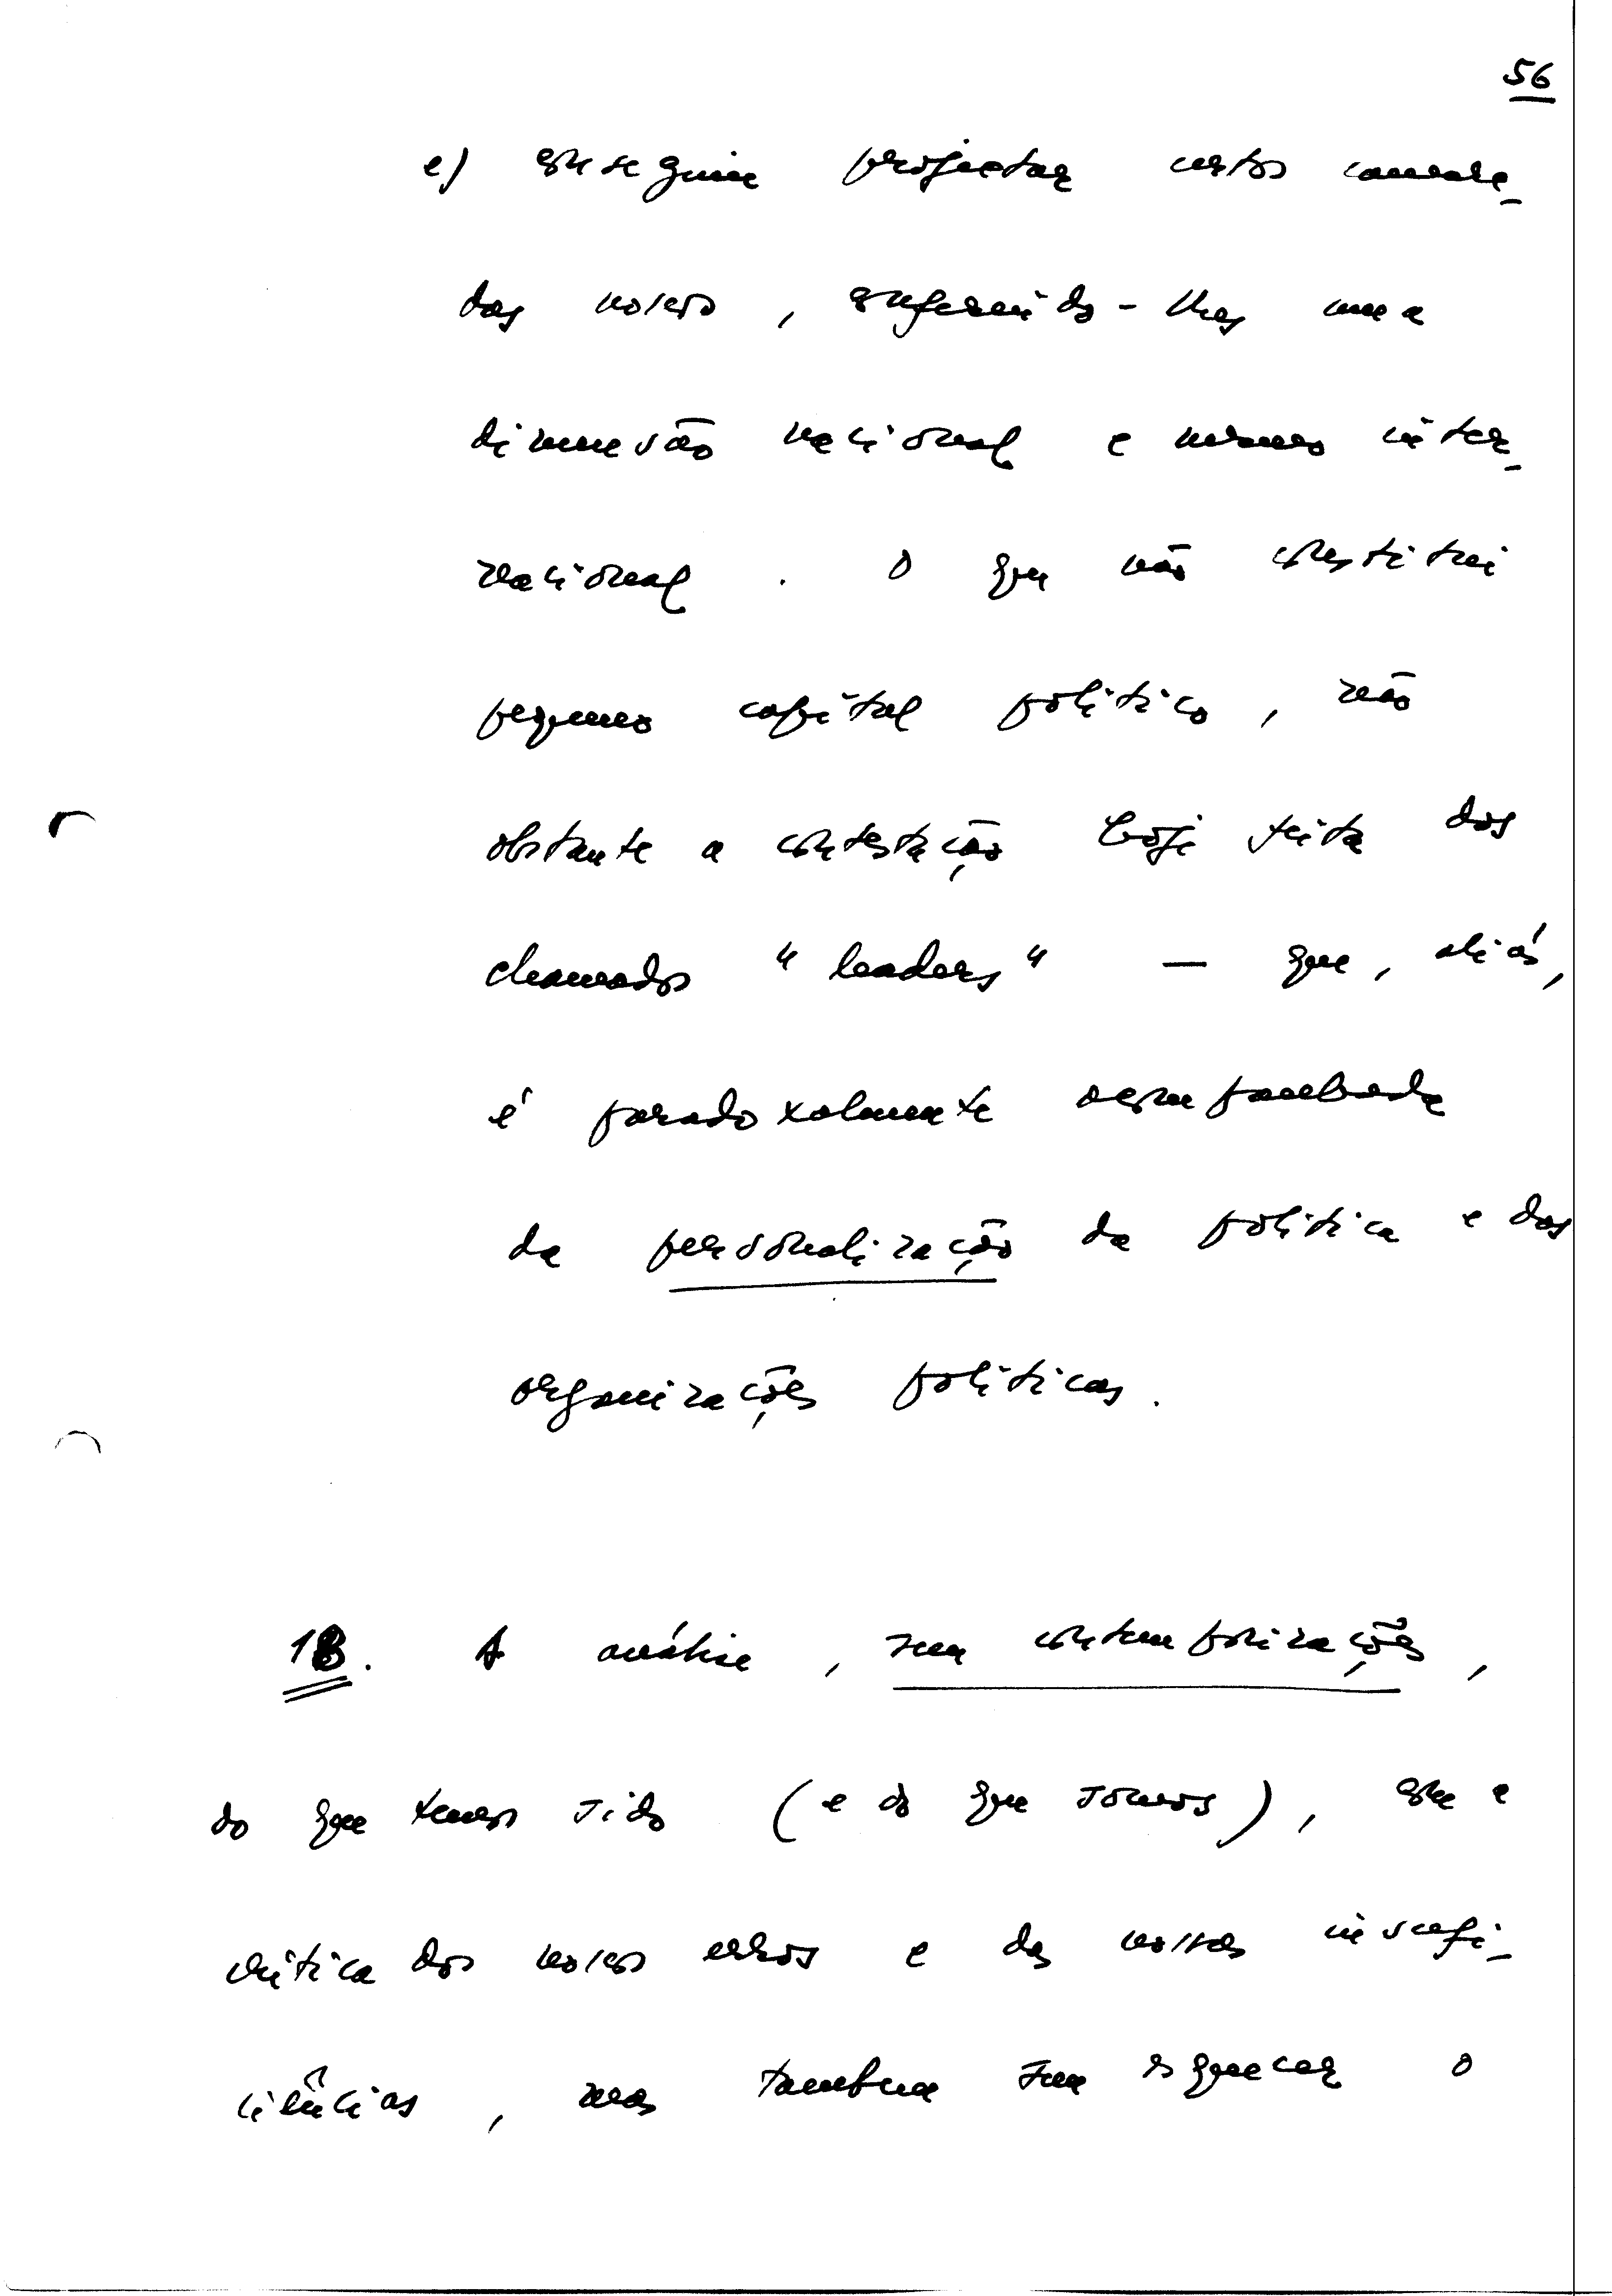 56
e) conseguir projectar certos camara-
das nossos, conferindo-lhes uma
dimensão nacional e mesmo inter-
nacional. O que não constitui
pequeno capital político, não
obstante a contestação hoje feita dos
chamados "leaders" — que, aliás,
é paradoxalmente acompanhada
da personalização da política e das
organizações políticas.
18. A análise, sem contemporizações,
do que temos sido (e do que somos), com a
crítica dos nossos erros e das nossas insufi-
ciências, mas também sem esquecer o